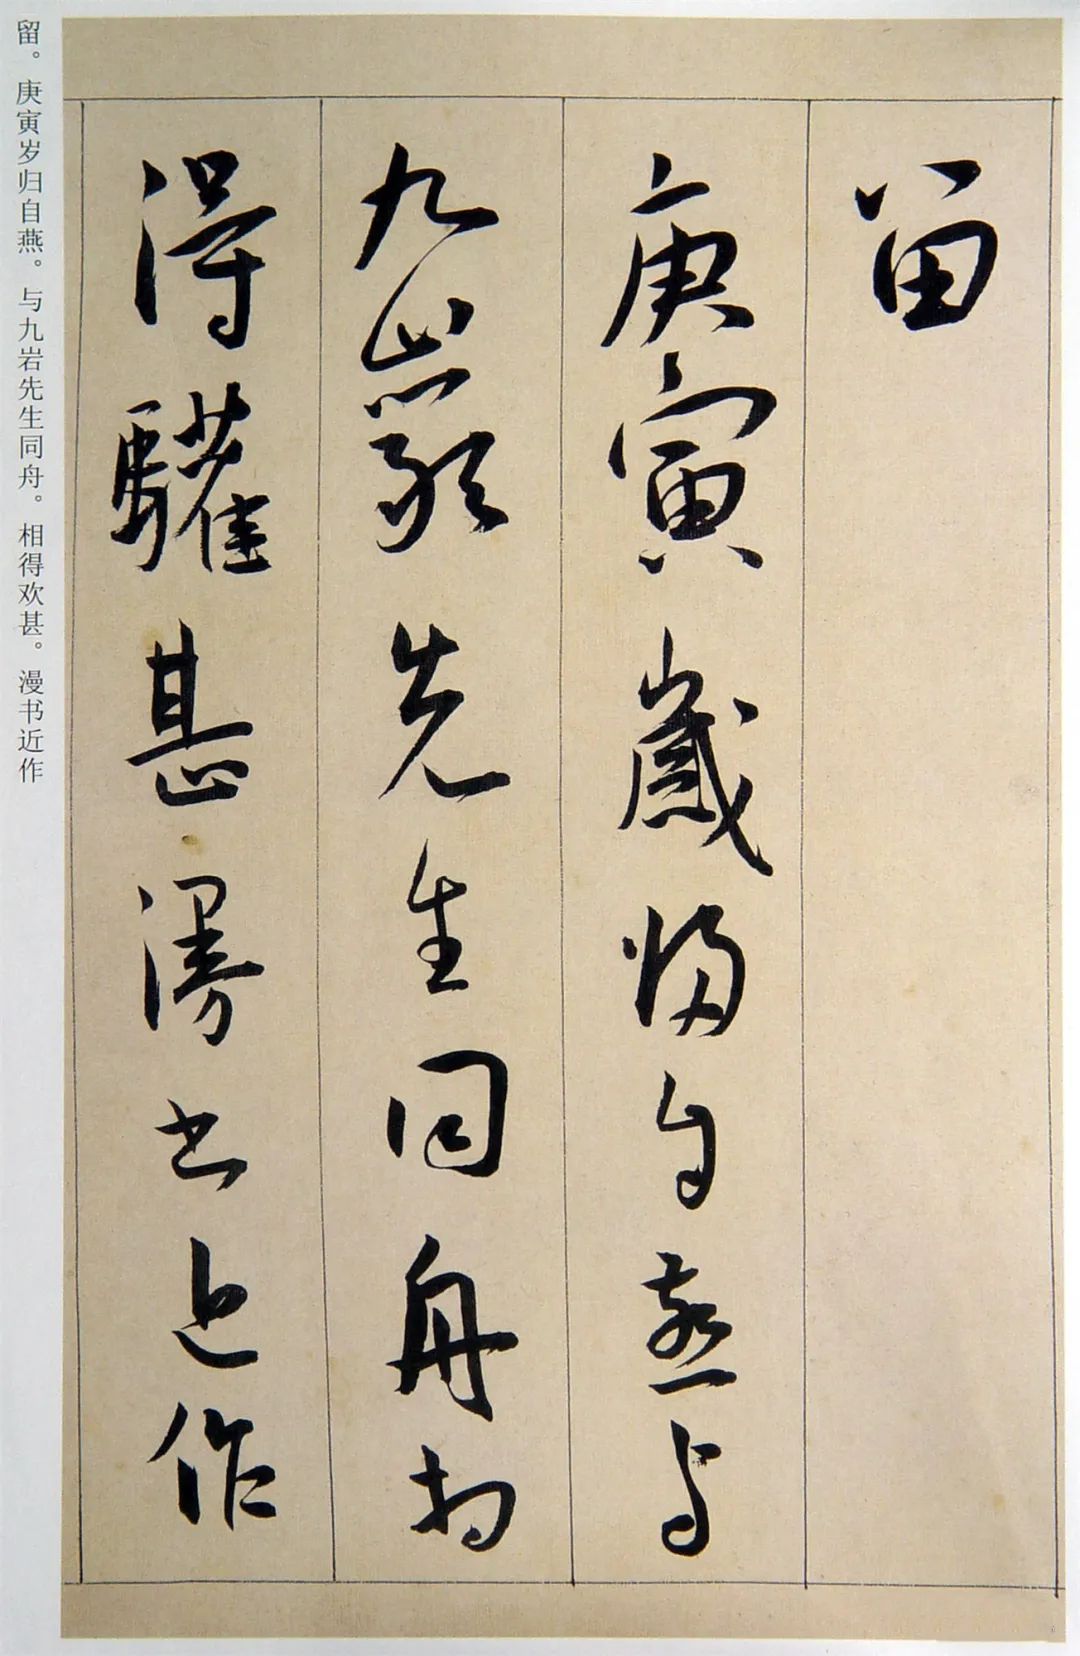 留
庚寅歲歸自燕与
九巖先生同舟相
得驩甚漫书近作
留。庚寅岁归自燕。与九岩先生同舟。相得欢甚。漫书近作